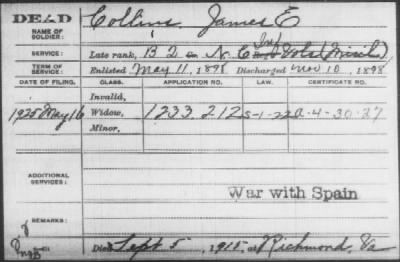 DEAD
NAME OF SOLDIER: Collins, James E
SERVICE: Late rank, B 2 N. C. Inf
TERM OF SERVICE: Enlisted May 11, 1898 Discharged Nov 10, 1898
DATE OF FILING. CLASS. APPLICATION NO. LAW. CERTIFICATE NO.
Invalid,
1925 May 16 Widow, 1233.212 5-1-22 a-4-30-27
Minor,
ADDITIONAL SERVICES:
War with Spain
REMARKS:
Died Sept 5, 1915, at Richmond, Va